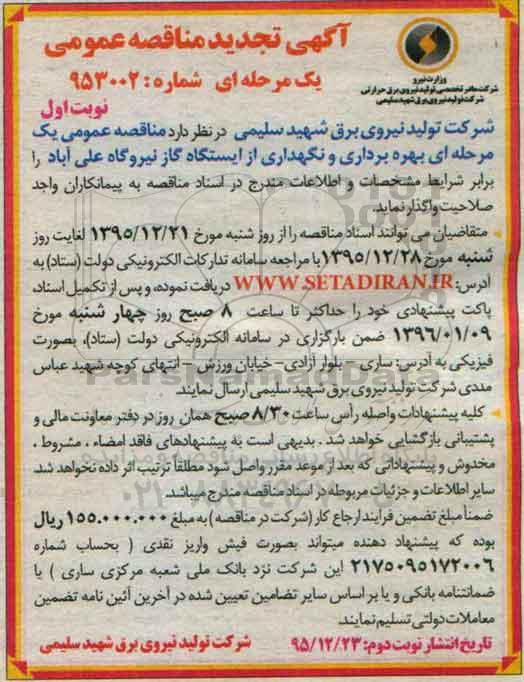 آگهی تجدید مناقصه عمومی
یک مرحله ای شماره: ۹۵۳۰۰۲
وزارت نیرو
شرکت مادر تخصصی تولید نیروی برق حرارتی
شرکت تولید نیروی برق شهید سلیمی
نوبت اول
شرکت تولید نیروی برق شهید سلیمی در نظر دارد مناقصه عمومی یک
مرحله ای بهره برداری و نگهداری از ایستگاه گاز نیروگاه علی آباد را
برابر شرایط مشخصات و اطلاعات مندرج در اسناد مناقصه به پیمانکاران واجد
صلاحیت واگذار نماید.
متقاضیان می توانند اسناد مناقصه را از روز شنبه مورخ ۱۳۹۵/۱۲/۲۱ لغایت روز
شنبه مورخ ۱۳۹۵/۱۲/۲۸ با مراجعه سامانه تدارکات الکترونیکی دولت (ستاد) به
آدرس: WWW.SETADIRAN.IR دریافت نموده، و پس از تکمیل اسناد،
پاکت پیشنهادی خود را حداکثر تا ساعت ۸ صبح روز چهار شنبه مورخ
۱۳۹۶/۰۱/۰۹ ضمن بارگزاری در سامانه الکترونیکی دولت (ستاد)، بصورت
فیزیکی به آدرس: ساری - بلوار آزادی - خیابان ورزش - انتهای کوچه شهید عباس
مددی شرکت تولید نیروی برق شهید سلیمی ارسال نمایند.
کلیه پیشنهادات واصله رأس ساعت ۸/۳۰ صبح همان روز در دفتر معاونت مالی و
پشتیبانی بازگشایی خواهد شد. بدیهی است به پیشنهادهای فاقد امضاء، مشروط،
مخدوش و پیشنهاداتی که بعد از موعد مقرر واصل شود مطلقا ترتیب اثر داده نخواهد شد.
سایر اطلاعات و جزئیات مربوطه در اسناد مناقصه مندرج میباشد.
ضمناً مبلغ تضمین فرایند ارجاع کار (شرکت در مناقصه) به مبلغ ۱۵۵.۰۰۰.۰۰۰ ریال
بوده که پیشنهاد دهنده میتواند بصورت فیش واریز نقدی (بحساب شماره
۲۱۷۵۰۹۵۱۷۲۰۰۶ این شرکت نزد بانک ملی شعبه مرکزی ساری) یا
ضمانتنامه بانکی و یا بر اساس سایر تضامین تعیین شده در آخرین آئین نامه تضمین
معاملات دولتی تسلیم نمایند.
تاریخ انتشار نوبت دوم: ۹۵/۱۲/۲۳
شرکت تولید نیروی برق شهید سلیمی